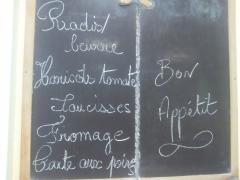 Radis
beurre
Haricots tomate
Saucisses
Fromage
Tarte aux poires
Bon
Appétit